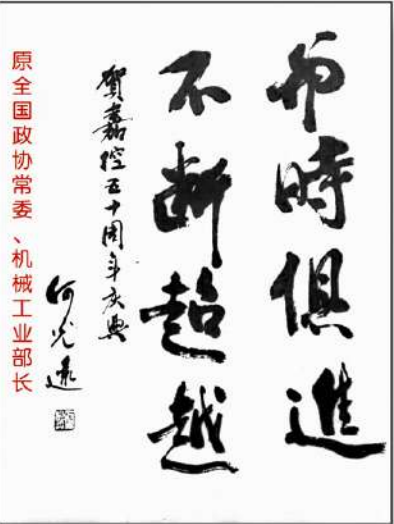 與時俱進
不断超越
賀嘉控五十周年庆典
何光遠
原全国政协常委、机械工业部长